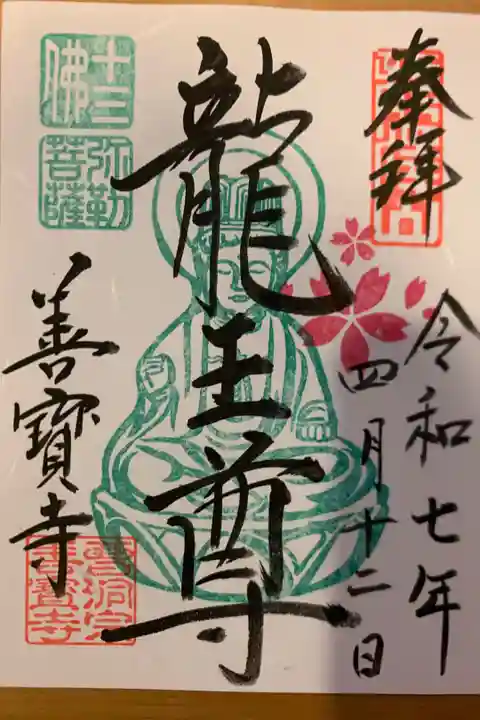 奉拝
令和七年
四月十二日
龍王尊
十三佛
弥勒菩薩
善寳寺
曹洞宗
善寳寺